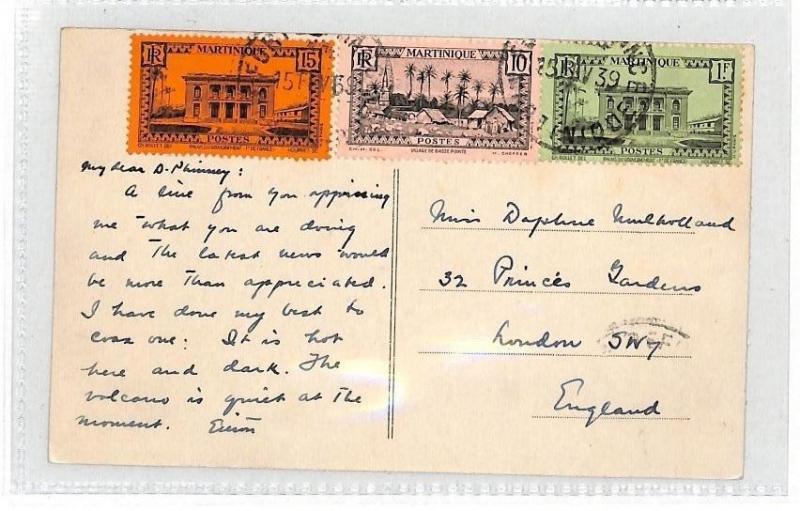 RF MARTINIQUE 15
POSTES
RF MARTINIQUE 10
POSTES
VILLAGE DE BASSE POINTE
RF MARTINIQUE 1F
POSTES
39
My dear D-
A line from you apprising
me what you are doing
and the latest news would
be more than appreciated.
I have done my best to
coax one: It is hot
here and dark. The
volcano is quiet at the
moment.
Miss Daphne Mulholland
32 Princes Gardens
London SW7
England